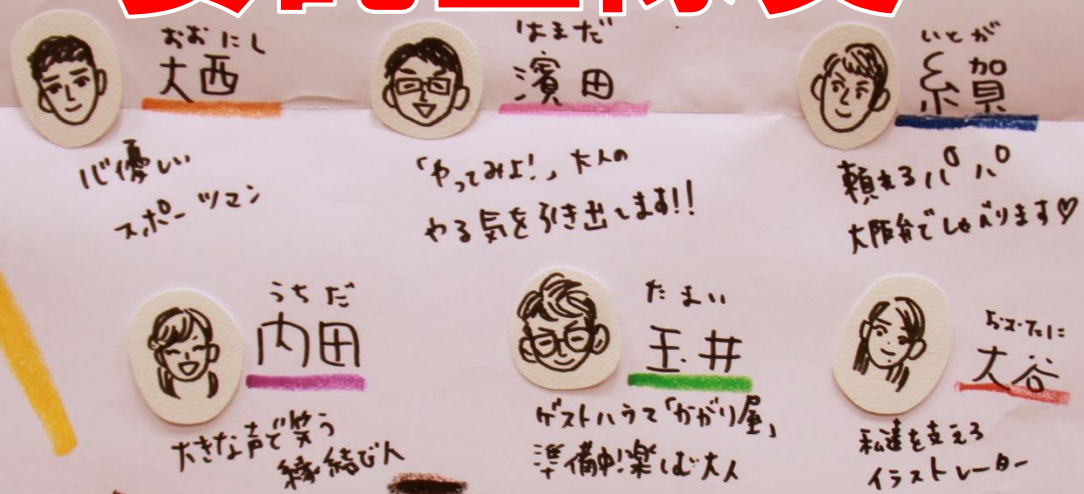 おおにし
大西
心優しい
スポーツマン
はまだ
濱田
「やってみよ!」大人の
やる気を引き出します!!
いとが
糸賀
頼れるパパ
大阪弁でしゃべります♡
うちだ
内田
大きな声で笑う
縁結び人
たまい
玉井
ゲストハウス「かがり屋」
準備中!楽しむ大人
おおたに
大谷
私達を支える
イラストレーター